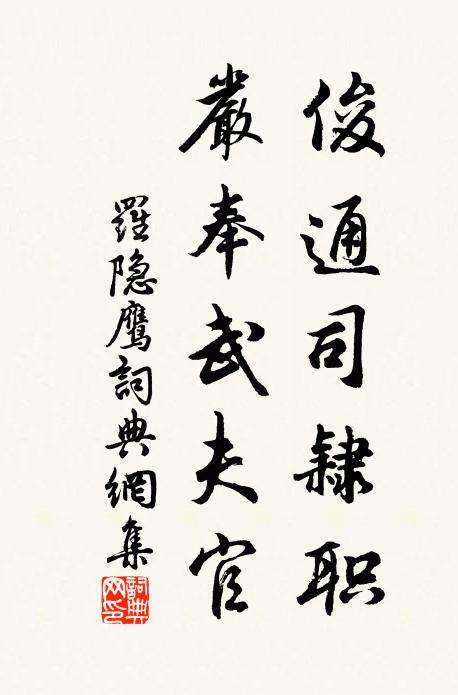 俊通司隸职
嚴奉武夫官
羅隐鹰詞典網集
詞典网印